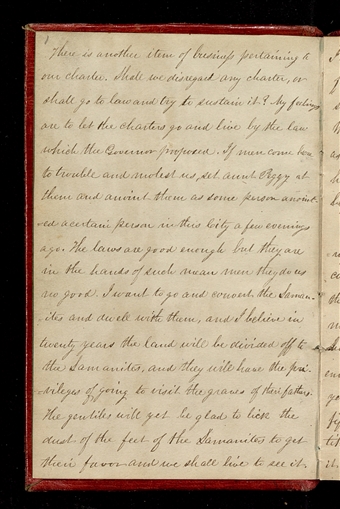 There is another item of business pertaining to
our charter. Shall we disregard any charter, or
shall go to law and try to sustain it? My feelings
are to let the charters go and live by the law
which the Governor proposed. If men come here
to trouble and molest us, set aunt Peggy at
them and anoint them as some person anoint-
-ed a certain person in this City a few evenings
ago. The laws are good enough but they are
in the hands of such mean men they do us
no good. I want to go and convert the Laman-
-ites and dwell with them, and I believe in
twenty years the land will be divided off to
the Lamanites, and they will have the pri-
-vileges of going to visit the graves of their fathers.
The gentiles will yet be glad to lick the
dust of the feet of the Lamanites to get
their favor and we shall live to see it.